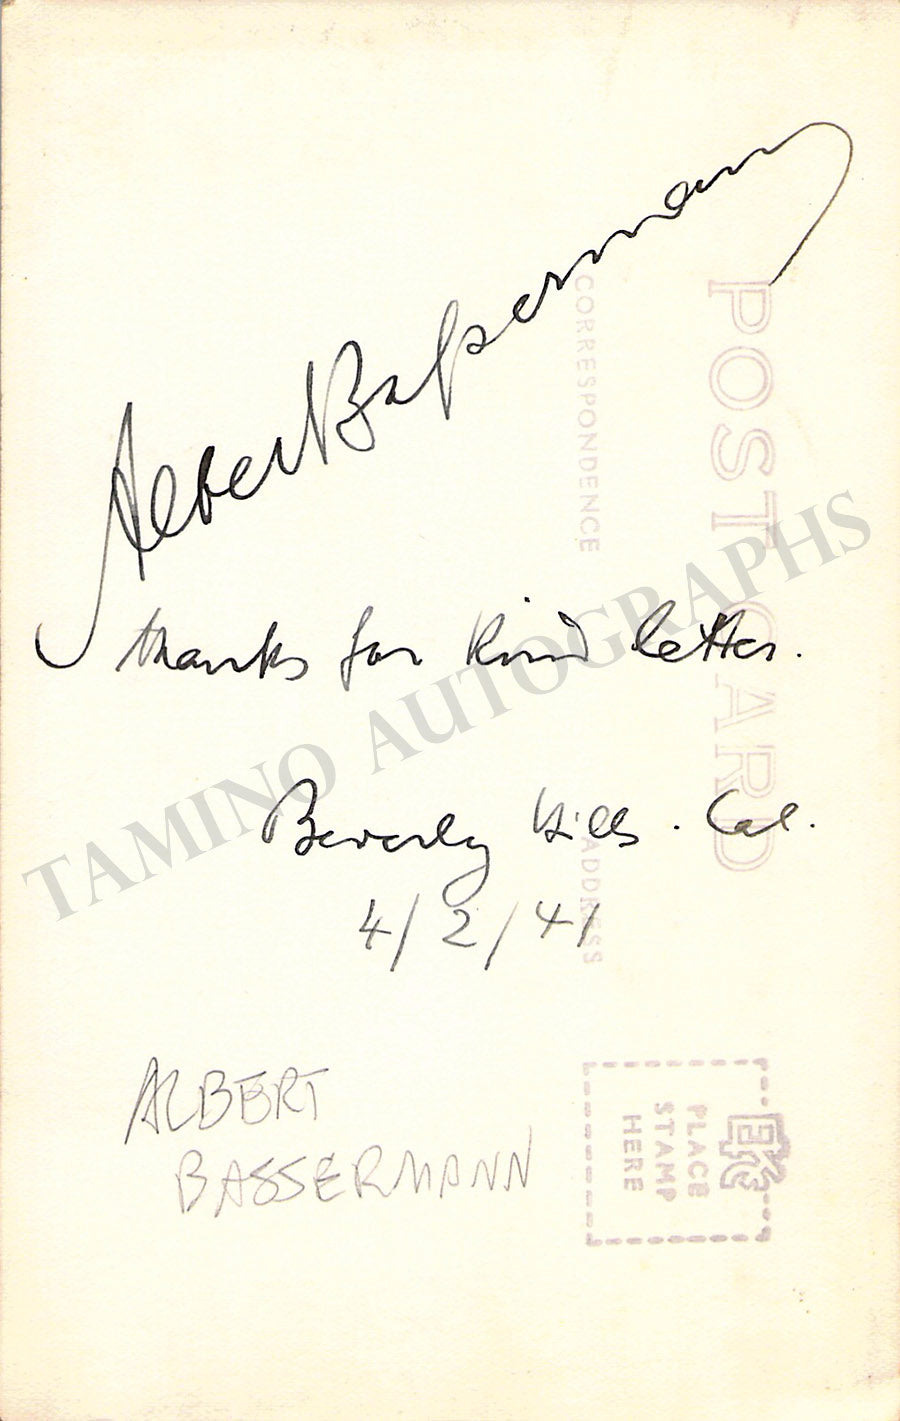 Albert Baßermann
thanks for kind letter.
Beverly Hills. Cal.
4/2/41
ALBERT
BASSERMANN
POST CARD
CORRESPONDENCE
ADDRESS
PLACE
STAMP
HERE
TAMINO AUTOGRAPHS